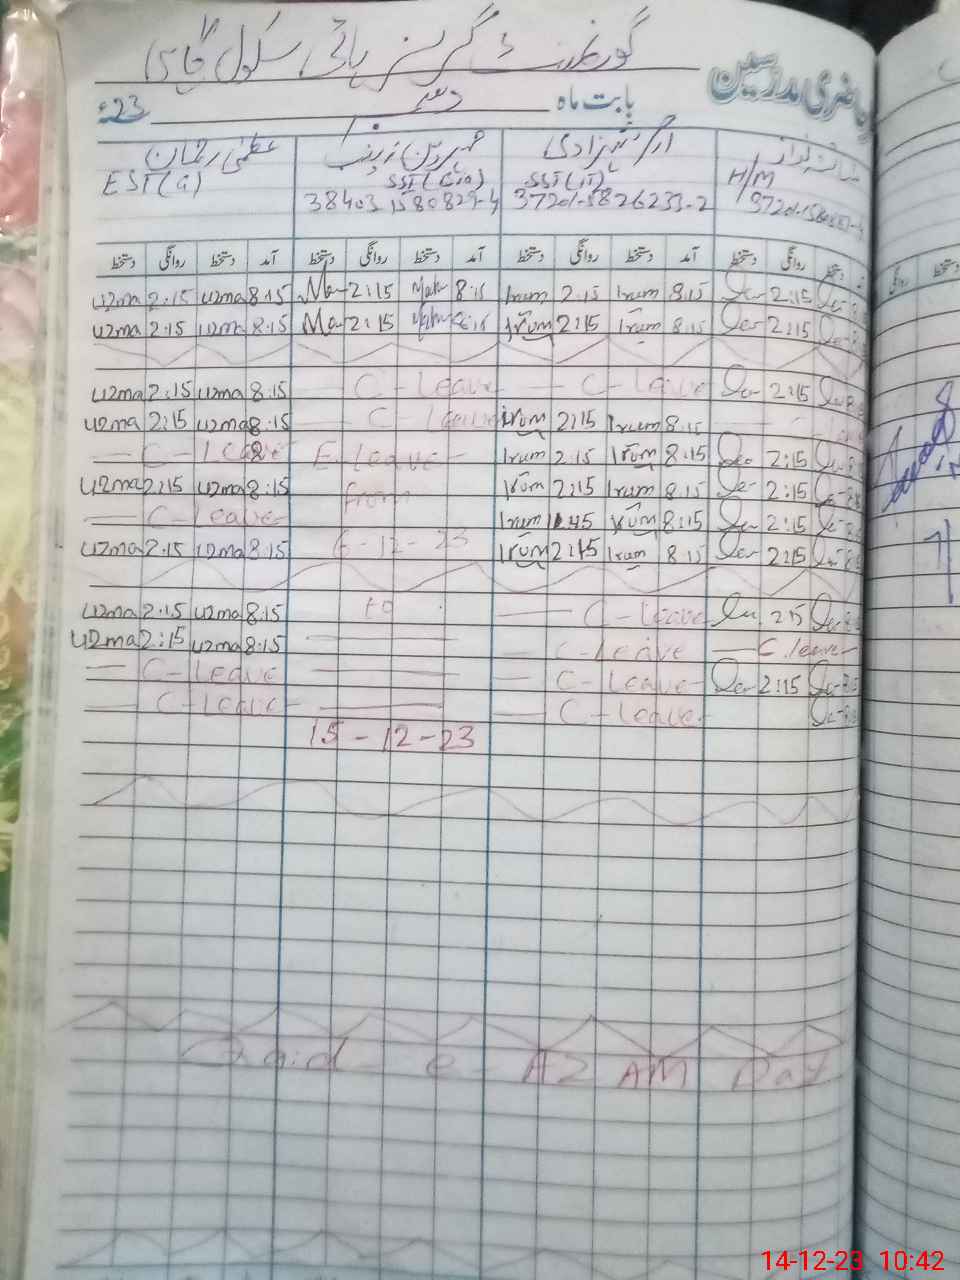 گورنمنٹ گرلز ہائی سکول
حاضری مدرسین
بابت ماہ دسمبر 23ء
ارم شہزادی مہرین زینب عظمیٰ رحمان
H/M SST(IT) SST( EST(G)
37201-5826233-2 38403 1580829-4
دستخط روانگی دستخط دستخط روانگی دستخط آمد دستخط روانگی دستخط آمد دستخط روانگی دستخط آمد
uzma 2:15 uzma 8:15 2:15 8:15 Irum 2:15 Irum 8:15 2:15
uzma 2:15 uzma 8:15 2:15 8:15 Irum 2:15 Irum 8:15 2:15
uzma 2:15 uzma 8:15 — C - Leave — C - Leave 2:15
uzma 2:15 uzma 8:15 — C - Leave irum 2:15 Irum 8:15
— C - Leave E - Leave - Irum 2:15 Irum 8:15 2:15
uzma 2:15 uzma 8:15 from Irum 2:15 Irum 8:15 2:15
— C - Leave Irum 11:45 Irum 8:15 2:15
uzma 2:15 uzma 8:15 6-12-23 Irum 2:15 Irum 8:15 2:15
uzma 2:15 uzma 8:15 to — C - Leave 2:15
uzma 2:15 uzma 8:15 — C - Leave — C. leave
— C - Leave — C - Leave 2:15
— C - Leave — C - Leave
15-12-23
Quaid - e - AZAM Day
14-12-23 10:42